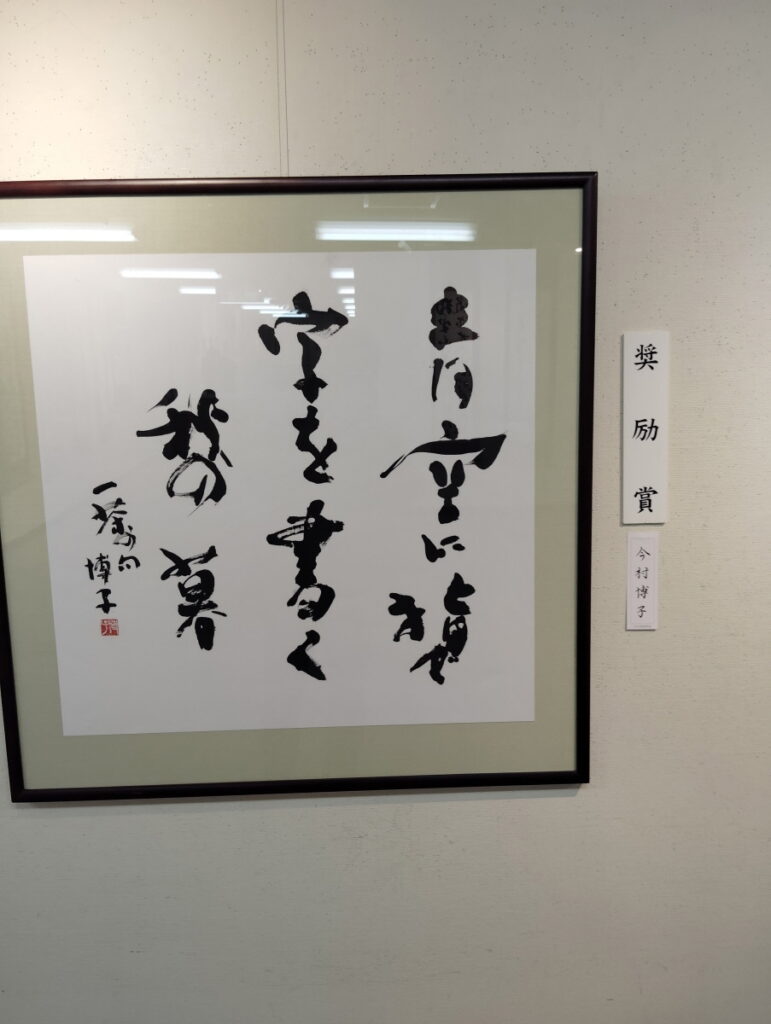 青空に指で
字を書く
秋の暮
一茶の句
博子
奨励賞
今村博子